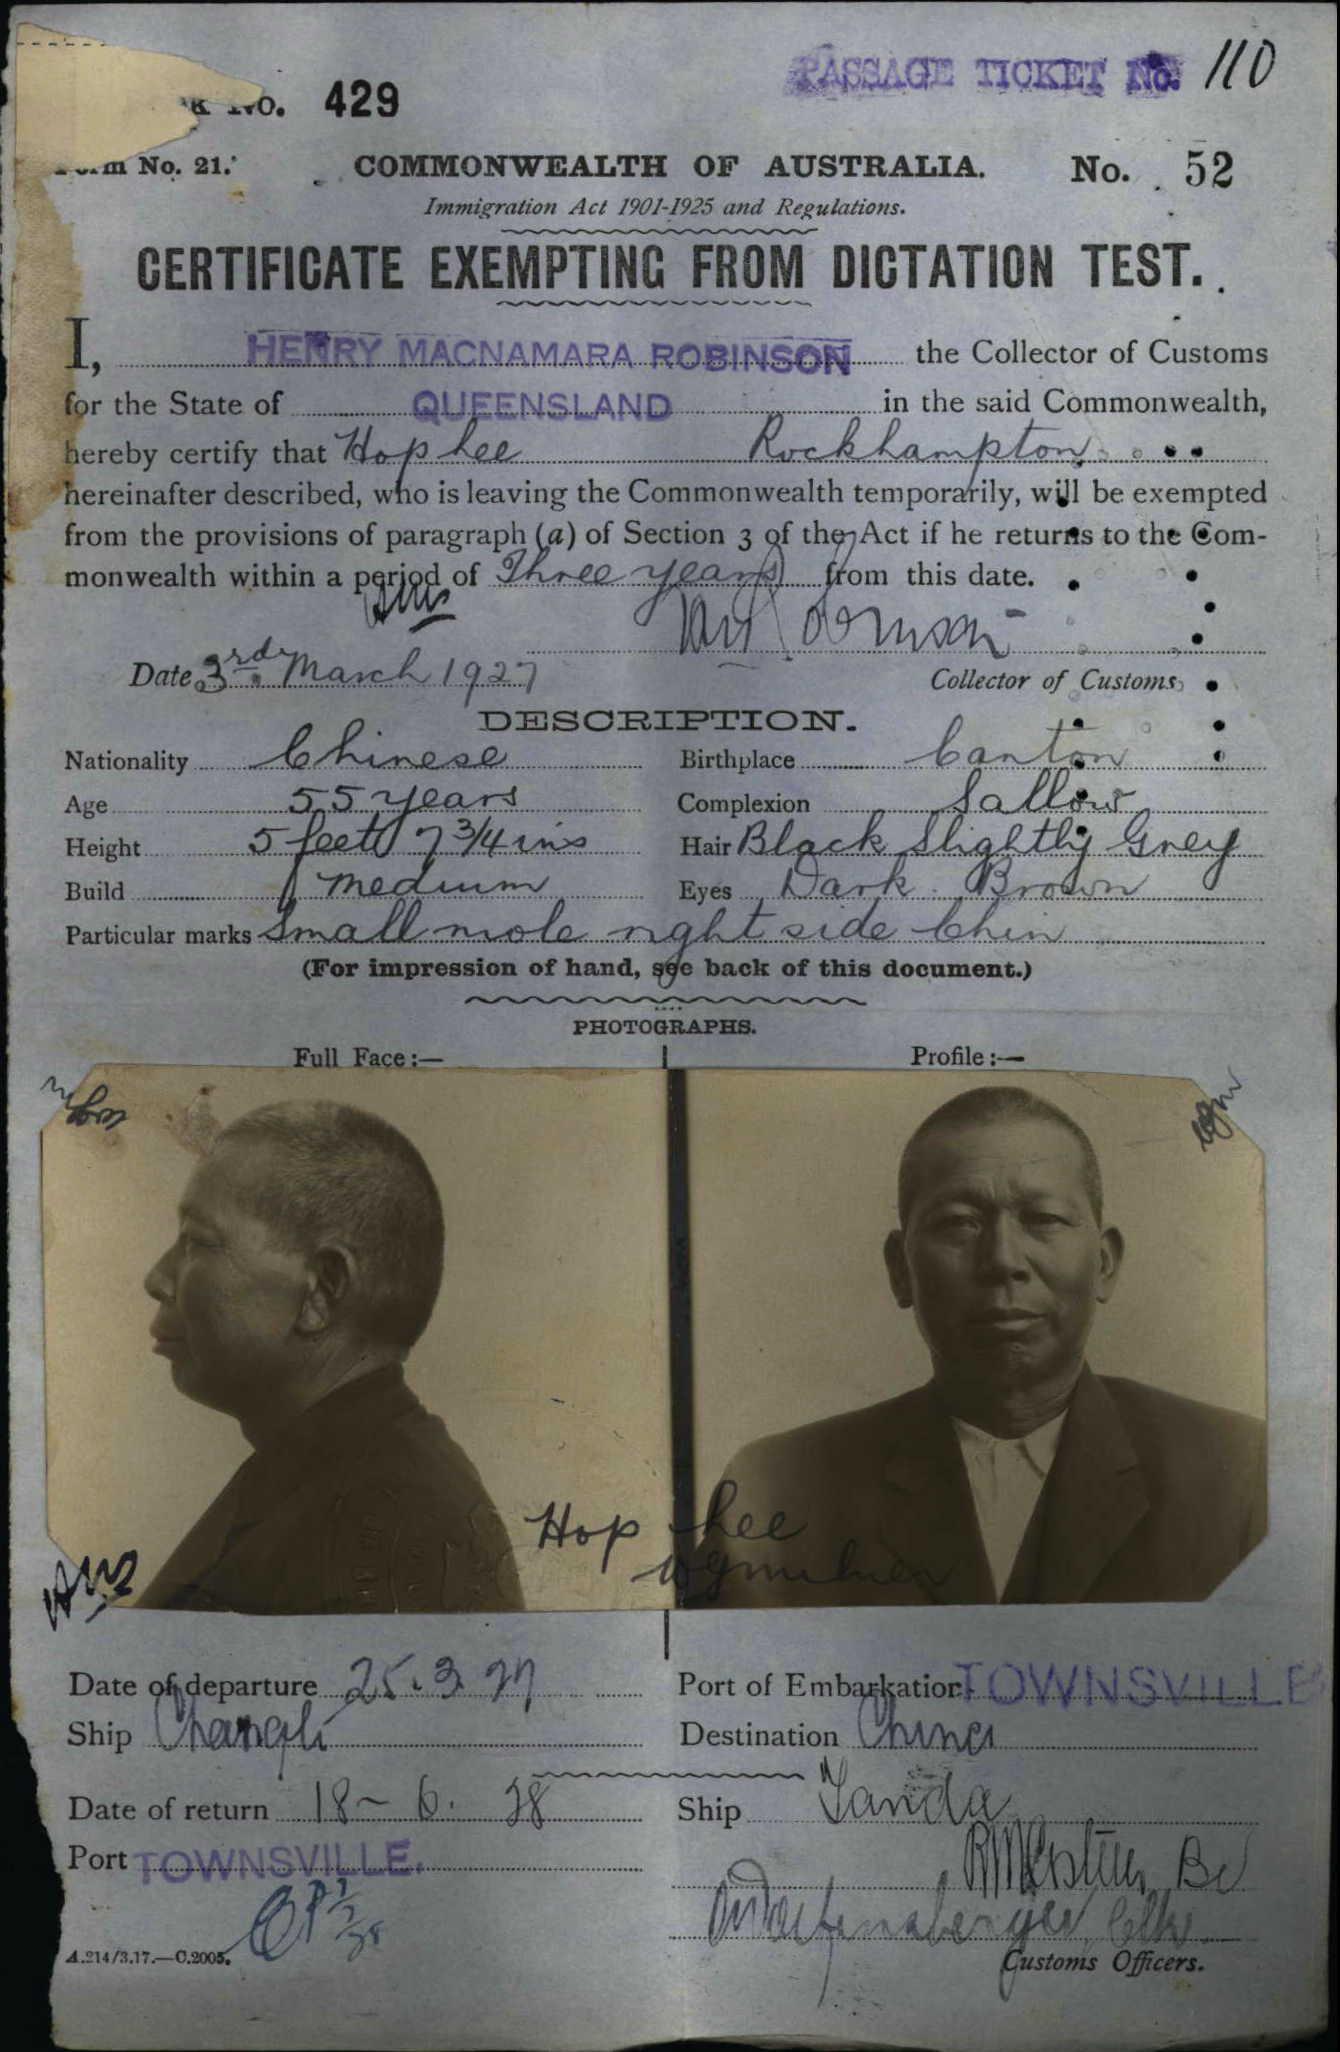 PASSAGE TICKET No. 110
No. 429
Form No. 21. COMMONWEALTH OF AUSTRALIA. No. 52
Immigration Act 1901-1925 and Regulations.
CERTIFICATE EXEMPTING FROM DICTATION TEST.
I, HENRY MACNAMARA ROBINSON the Collector of Customs
for the State of QUEENSLAND in the said Commonwealth,
hereby certify that Hop Lee Rockhampton
hereinafter described, who is leaving the Commonwealth temporarily, will be exempted
from the provisions of paragraph (a) of Section 3 of the Act if he returns to the Com-
monwealth within a period of Three years from this date.
Date 3rd March 1927
Collector of Customs.
DESCRIPTION.
Nationality Chinese Birthplace Canton
Age 55 years Complexion Sallow
Height 5 feet 7 3/4 ins Hair Black Slightly Grey
Build medium Eyes Dark Brown
Particular marks Small mole right side Chin
(For impression of hand, see back of this document.)
PHOTOGRAPHS.
Full Face:— Profile:—
Hop Lee
Date of departure 25.3.27 Port of Embarkation TOWNSVILLE
Ship Changte Destination China
Date of return 18-6.28 Ship Tanda
Port TOWNSVILLE.
A.214/3.17.—C.2005. Customs Officers.